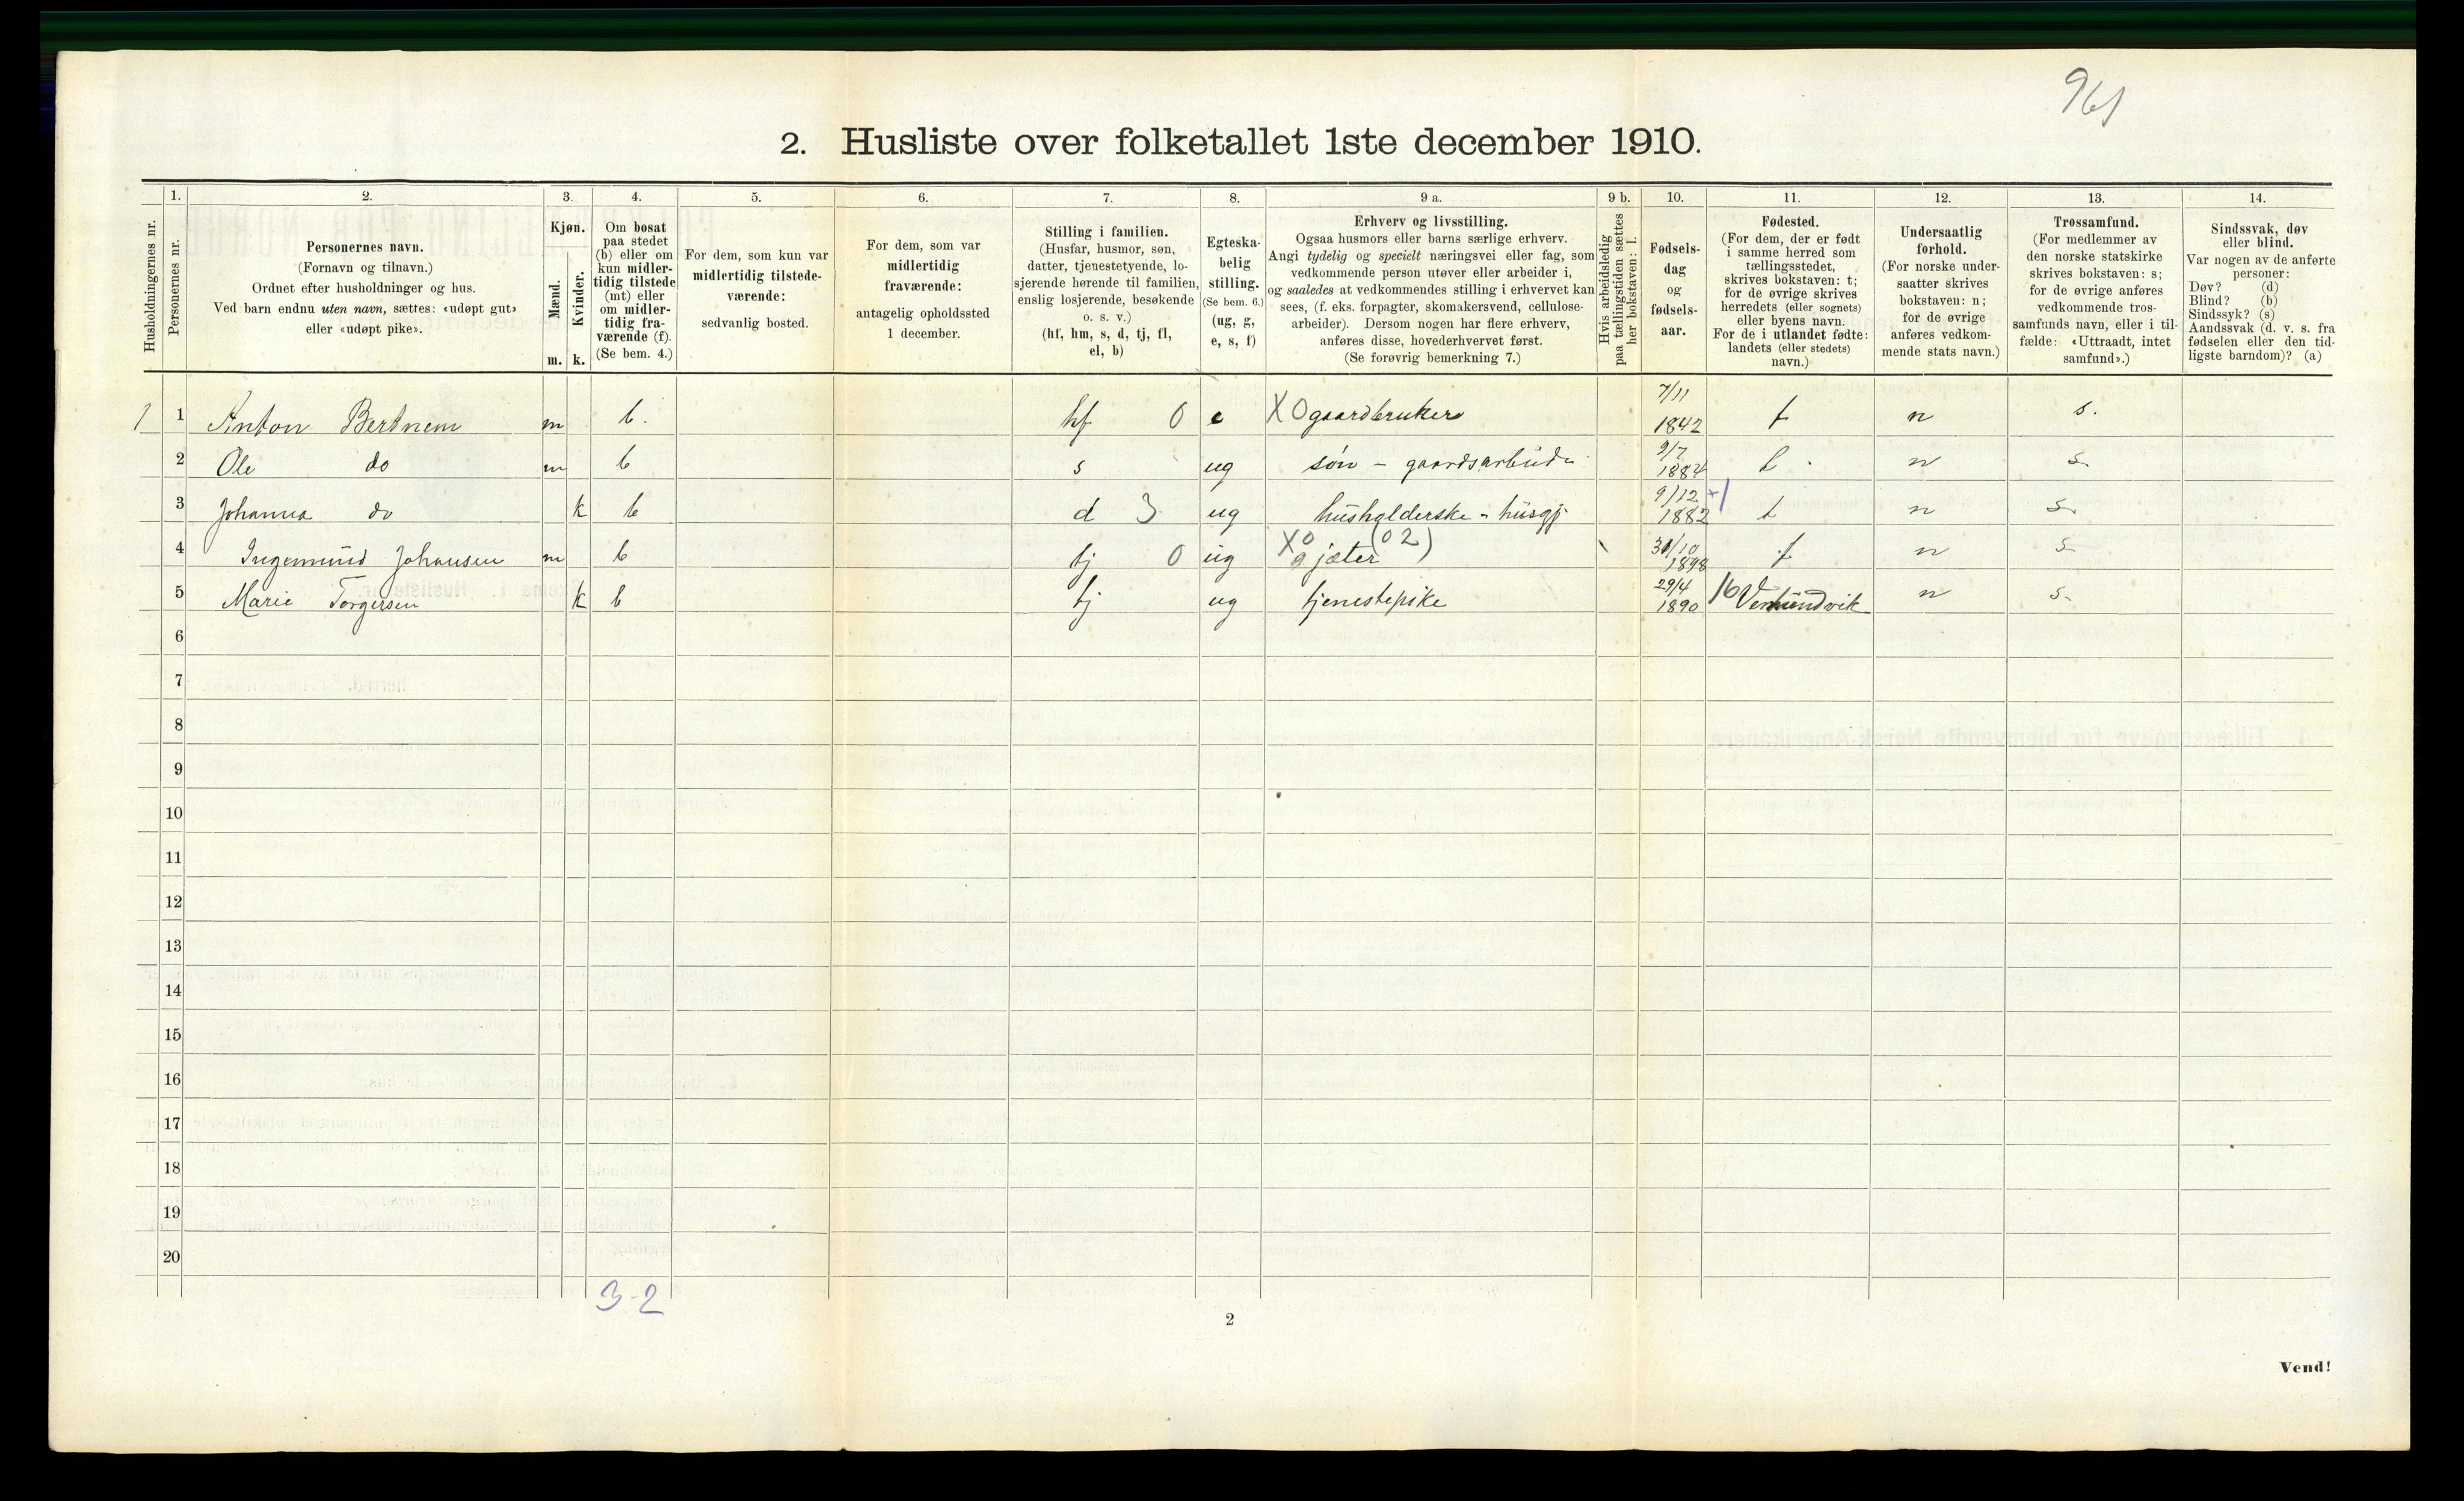 961
2. Husliste over folketallet 1ste december 1910.
1. 2. 3. 4. 5. 6. 7. 8. 9 a. 9 b. 10. 11. 12. 13. 14.
Husholdningernes nr.
Personernes nr.
Personernes navn.
(Fornavn og tilnavn.)
Ordnet efter husholdninger og hus.
Ved barn endnu uten navn, sættes: «udøpt gut»
eller «udøpt pike».
Kjøn.
Mænd.
Kvinder.
m. k.
Om bosat
paa stedet
(b) eller om
kun midler-
tidig tilstede
(mt) eller
om midler-
tidig fra-
værende (f).
(Se bem. 4.)
For dem, som kun var
midlertidig tilstede-
værende:
sedvanlig bosted.
For dem, som var
midlertidig
fraværende:
antagelig opholdssted
1 december.
Stilling i familien.
(Husfar, husmor, søn,
datter, tjenestetyende, lo-
sjerende hørende til familien,
enslig losjerende, besøkende
o. s. v.)
(hf, hm, s, d, tj, fl,
el, b)
Egteska-
belig
stilling.
(Se bem. 6.)
(ug, g,
e, s, f)
Erhverv og livsstilling.
Ogsaa husmors eller barns særlige erhverv.
Angi tydelig og specielt næringsvei eller fag, som
vedkommende person utøver eller arbeider i,
og saaledes at vedkommendes stilling i erhvervet kan
sees, (f. eks. forpagter, skomakersvend, cellulose-
arbeider). Dersom nogen har flere erhverv,
anføres disse, hovederhvervet først.
(Se forøvrig bemerkning 7.)
Hvis arbeidsledig
paa tællingstiden sættes
her bokstaven: l.
Fødsels-
dag
og
fødsels-
aar.
Fødested.
(For dem, der er født
i samme herred som
tællingsstedet,
skrives bokstaven: t;
for de øvrige skrives
herredets (eller sognets)
eller byens navn.
For de i utlandet fødte:
landets (eller stedets)
navn.)
Undersaatlig
forhold.
(For norske under-
saatter skrives
bokstaven: n;
for de øvrige
anføres vedkom-
mende stats navn.)
Trossamfund.
(For medlemmer av
den norske statskirke
skrives bokstaven: s;
for de øvrige anføres
vedkommende tros-
samfunds navn, eller i til-
fælde: «Uttraadt, intet
samfund».)
Sindssvak, døv
eller blind.
Var nogen av de anførte
personer:
Døv? (d)
Blind? (b)
Sindssyk? (s)
Aandssvak (d. v. s. fra
fødselen eller den tid-
ligste barndom)? (a)
1 1 Anton Bertnem m b. hf 0 e X 0 gaardbruker 7/11 1842 t n s.
2 Ole do m b s ug søn - gaardsarbeid 9/7 1884 t n s.
3 Johanna do k b d 3 ug husholderske - husgj. 9/12 1882 t n s.
4 Ingemund Johansen m b tj 0 ug X0 gjæter (02) 31/10 1898 t n s
5 Marie Torgersen k b tj ug tjenestepike 29/4 1890 16 Vemundvik n s.
6
7
8
9
10
11
12
13
14
15
16
17
18
19
20
3-2
2
Vend!